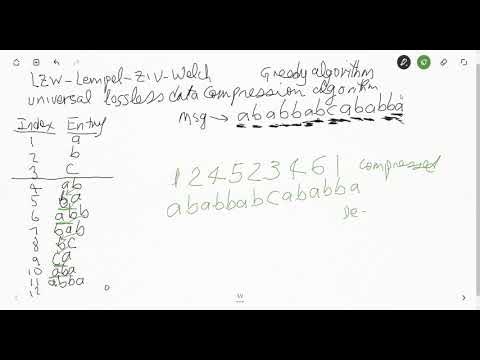 LZW-Lempel-Ziv-Welch Greedy algorithm
universal lossless data compression algorithm
msg → ababbabcababba
Index Entry
1 a
2 b
3 c
4 ab
5 ba
6 abb
7 bab
8 bc
9 ca
10 aba
11 abba
12
124523461 compressed
ababbabcababba
De-